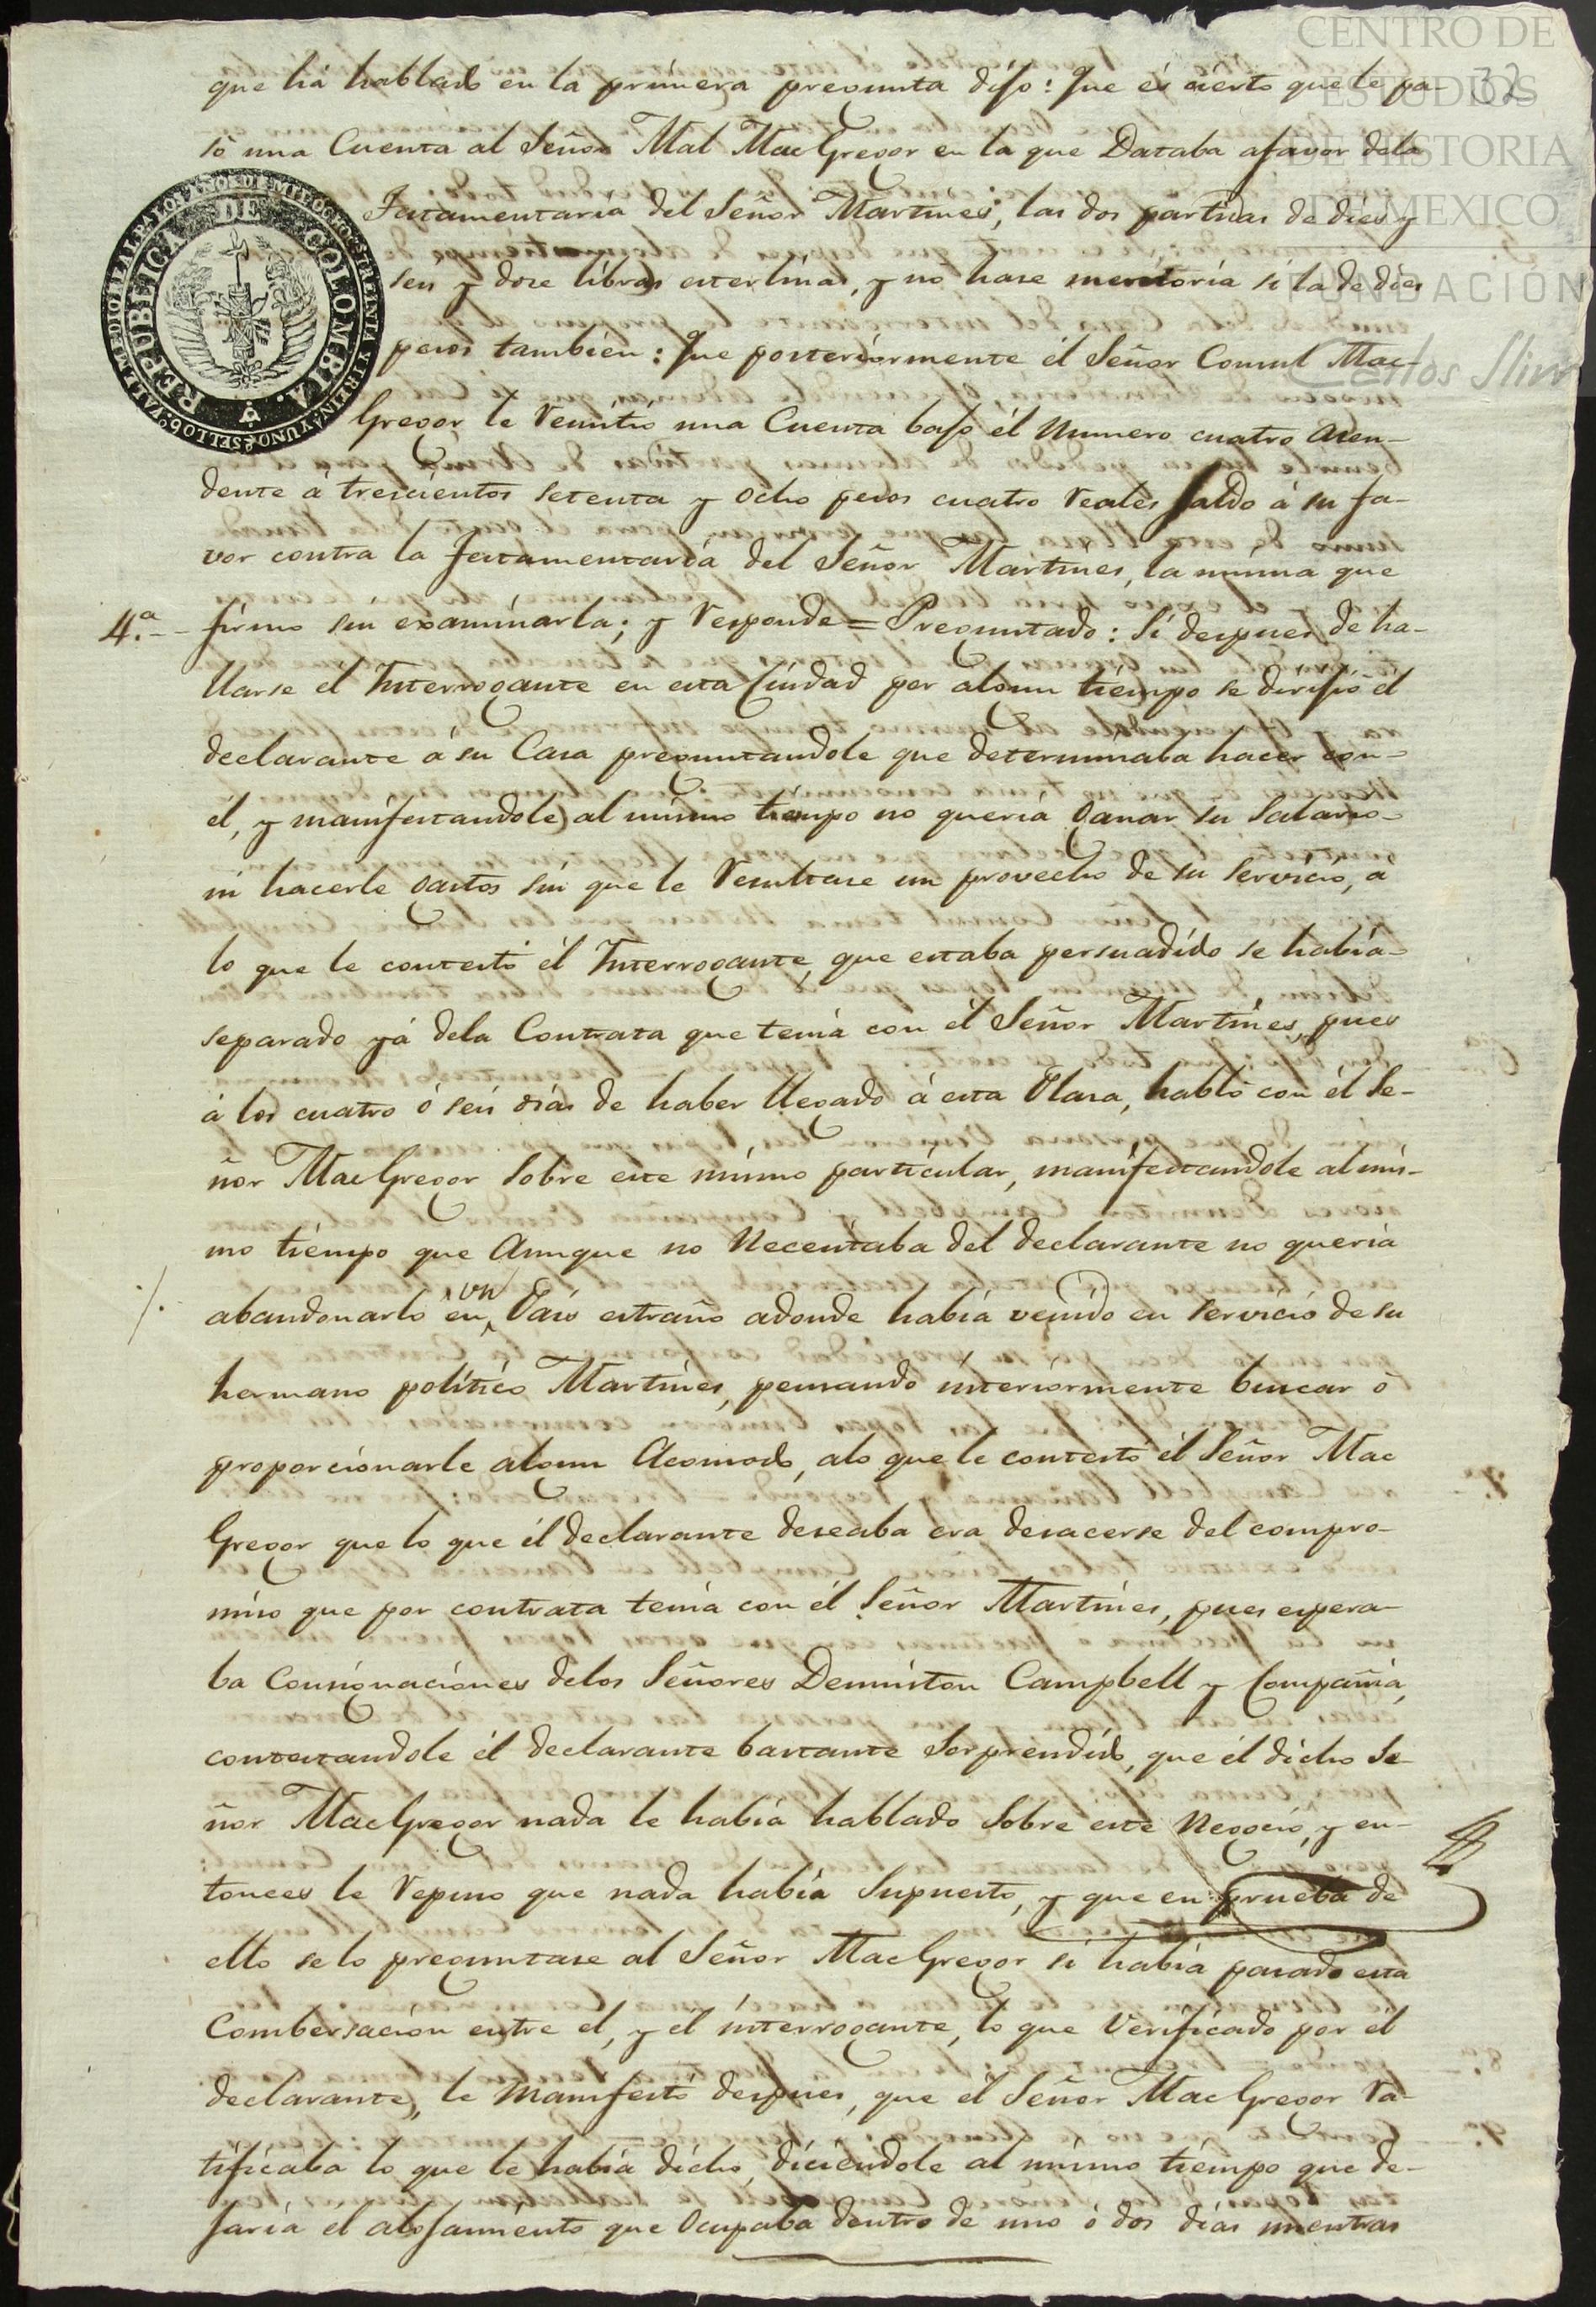 CENTRO DE
ESTUDIOS
DE HISTORIA
DE MEXICO
FUNDACIÓN
Carlos Slim
32
que há hablado en la primera pregunta dijo: Que és cierto que le pa-
só una Cuenta al Señor Mal MacGregor en la que Databa afavor dela
Testamentaria del Señor Martines, las dos partidas de dies y
seis y doze libras esterlinas, y no hase meritoria si la de dies
pesos tambien: Que posteriormente él Señor Consul Mac-
Gregor le remitio una Cuenta bajo él Numero cuatro acen-
dente á trescientos setenta y ocho pesos cuatro reales saldo á su fa-
vor contra la Testamentaria del Señor Martines, la misma que
4.ª - - firmo sin examinarla; y responde = Preguntado: Si despues de ha-
llarse el Interrogante en esta Ciudad por algun tiempo se dirijió él
declarante á su Casa preguntandole que determinaba hacer con-
él, y manifestandole al mismo tiempo no queria ganar su Salario-
ni hacerle gastos sin que le resultase un provecho de su servicio, á
lo que le contestó él Interrogante, que estaba persuadido se habia-
separado yá dela Contrata que tenia con él Señor Martines, pues
á los cuatro ó seis dias de haber llegado á esta Plasa, habló con él Se-
ñor MacGregor sobre este mismo particular, manifestandole al mis-
mo tiempo que Aunque no Necentaba del declarante no queria
abandonarlo en un Pais estraño adonde habia venido en servicio de su
hermano politico Martines, pensando interiormente buscar ó
proporcionarle algun Acomodo, alo que le contesto él Señor Mac
Gregor que lo que él declarante deseaba era desacerse del compro-
miso que por contrata tenia con él Señor Martines, pues espera-
ba Consignaciones delos Señores Denniston Campbell y Compañia,
contestandole él declarante bastante Sorprendido, que él dicho Se-
ñor MacGregor nada le habia hablado Sobre este Negocio, y en-
tonces le repuso que nada habia Supuesto, y que en prueba de
ello se lo preguntase al Señor MacGregor si habia pasado esta
Combersacion entre el, y él interrogante, lo que Verificado por él
declarante, le manifestó despues, que el Señor MacGregor ra-
tificaba lo que le habia dicho, diciendole al mismo tiempo que de-
jaria el alojamiento que Ocupaba dentro de uno ó dos dias mientras
REPUBLICA DE COLOMBIA